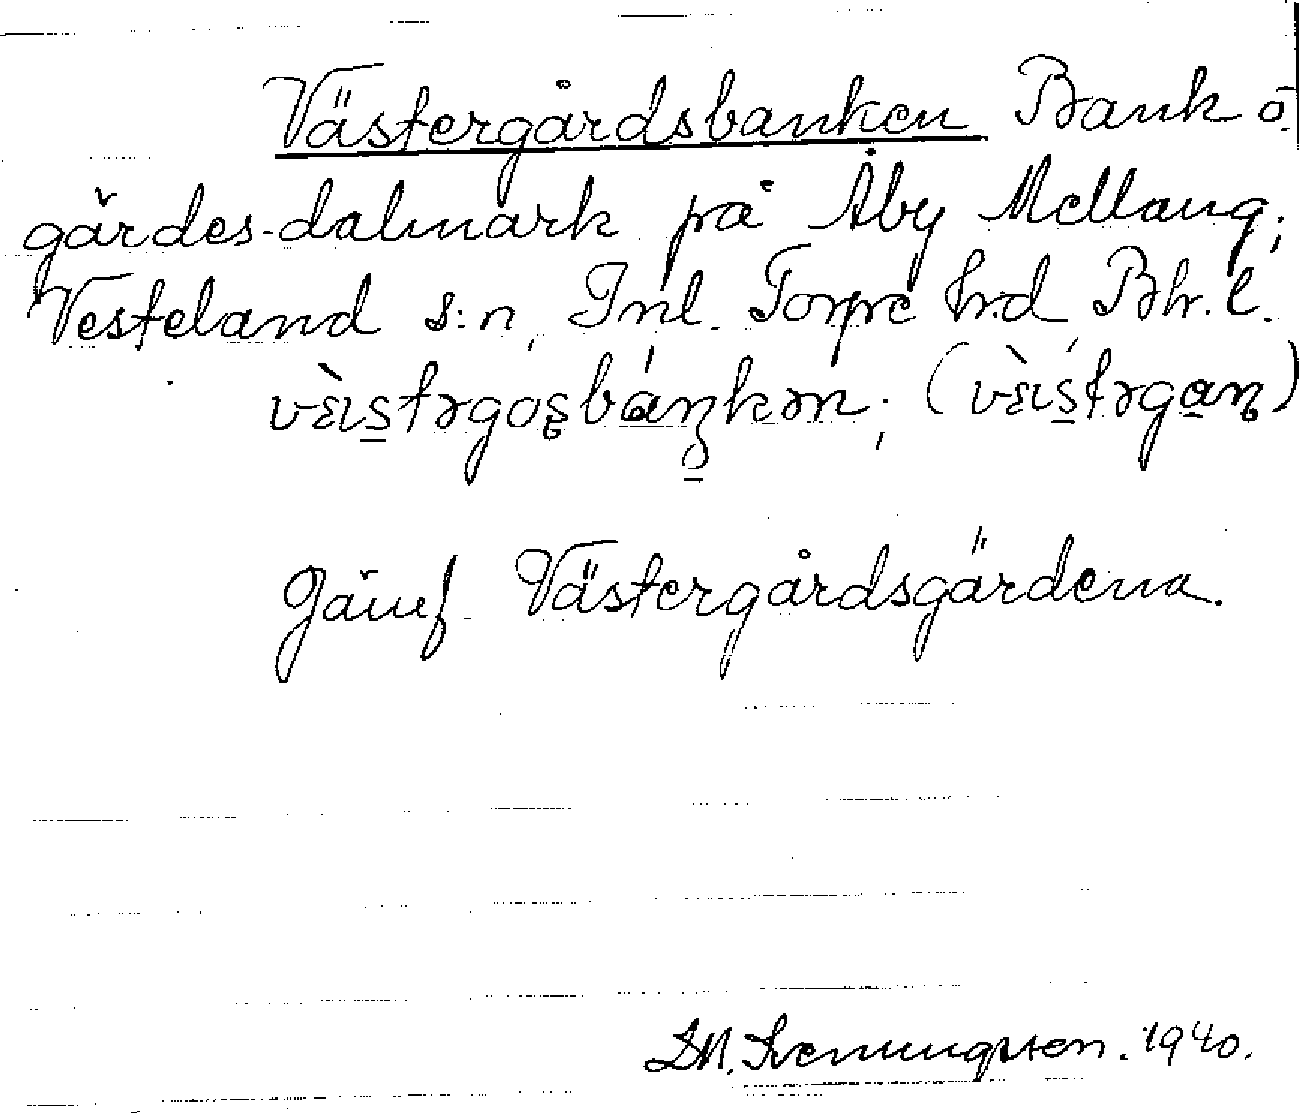 Västergårdsbanken Bank o.
gärdes-dalmark på Åby Mellang;
Vesteland s:n, Inl. Torpe hrd Bh. l.
vὲıs̠tərgos̠báŋkən; (vὲıs̠tərga̠ṇ)
Jämf. Västergårdsgärdena.
S.M. Svenungsson. 1940.